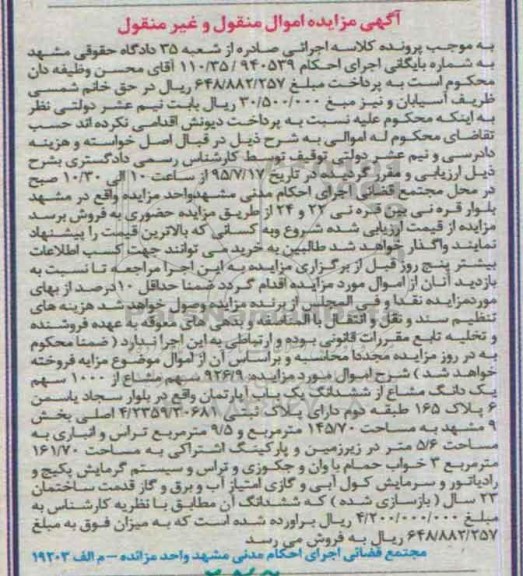 آگهی مزایده اموال منقول و غیر منقول
به موجب پرونده کلاسه اجرائی صادره از شعبه ۳۵ دادگاه حقوقی مشهد
به شماره بایگانی اجرای احکام ۹۴۰۵۳۹ / ۱۱۰/۳۵ آقای محسن وظیفه دان
محکوم است به پرداخت مبلغ ۶۴۸/۸۸۲/۲۵۷ ریال در حق خانم شمسی
ظریف آسیابان و نیز مبغ ۳۰/۵۰۰/۰۰۰ ریال بابت نیم عشر دولتی نظر
به اینکه محکوم علیه نسبت به پرداخت دیونش اقدامی نکرده اند حسب
تقاضای محکوم له اموالی به شرح ذیل در قبال اصل خواسته و هزینه
دادرسی و نیم عشر دولتی توقیف توسط کارشناس رسمی دادگستری بشرح
ذیل ارزیابی و مقرر گردیده در تاریخ ۹۵/۷/۱۷ از ساعت ۱۰ الی ۱۰/۳۰ صبح
در محل مجتمع قضائی اجرای احکام مدنی مشهدواحد مزایده واقع در مشهد
بلوار قره نی بین قره نی ۲۲ و ۲۴ از طریق مزایده حضوری به فروش برسد
مزایده از قیمت ارزیابی شده شروع وبه کسانی که بالاترین قیمت را پیشنهاد
نمایند واگذار خواهد شد طالبین به خرید می توانند جهت کسب اطلاعات
بیشتر پنج روز قبل از برگزاری مزایده به این اجرا مراجعه تا نسبت به
بازدید آنان از اموال مورد مزایده اقدام گردد ضمنا حداقل ۱۰درصد از بهای
موردمزایده نقدا و فی المجلس از برنده مزایده وصول خواهد شد هزینه های
تنظیم سند و نقل و انتقال بالمناصفه و بدهی های معوقه به عهده فروشنده
و تخلیه تابع مقررات قانونی بوده و ارتباطی به این اجرا ندارد ( ضمنا محکوم
به در روز مزایده مجددا محاسبه و براساس آن از اموال موضوع مزایه فروخته
خواهد شد ) شرح اموال مورد مزایده: ۹۲۶/۹ سهم مشاع از ۱۰۰۰ سهم
یک دانگ مشاع از ششدانگ یک باب آپارتمان واقع در بلوار سجاد یاسمن
۶ پلاک ۱۶۵ طبقه دوم دارای پلاک ثبتی ۴/۲۳۵۹/۳۰۶۸۱ اصلی بخش
۹ مشهد به مساحت ۱۴۵/۷۰ مترمربع و ۹/۵ مترمربع تراس و انباری به
مساحت ۵/۶ متر در زیرزمین و پارکینگ اشتراکی به مساحت ۱۶۱/۷۰
مترمربع ۳ خواب حمام با وان و جکوزی و تراس و سیستم گرمایش پکیج و
رادیاتور و سرمایش کولر آبی و گازی امتیاز آب و برق و گاز قدمت ساختمان
۲۳ سال ( بازسازی شده ) که ششدانگ آن مطابق با نظریه کارشناس به
مبلغ ۴/۲۰۰/۰۰۰/۰۰۰ ریال برآورده شده است که به میزان فوق به مبلغ
۶۴۸/۸۸۲/۲۵۷ ریال به فروش می رسد
مجتمع قضائی اجرای احکام مدنی مشهد واحد مزائده – م الف ۱۹۲۰۳